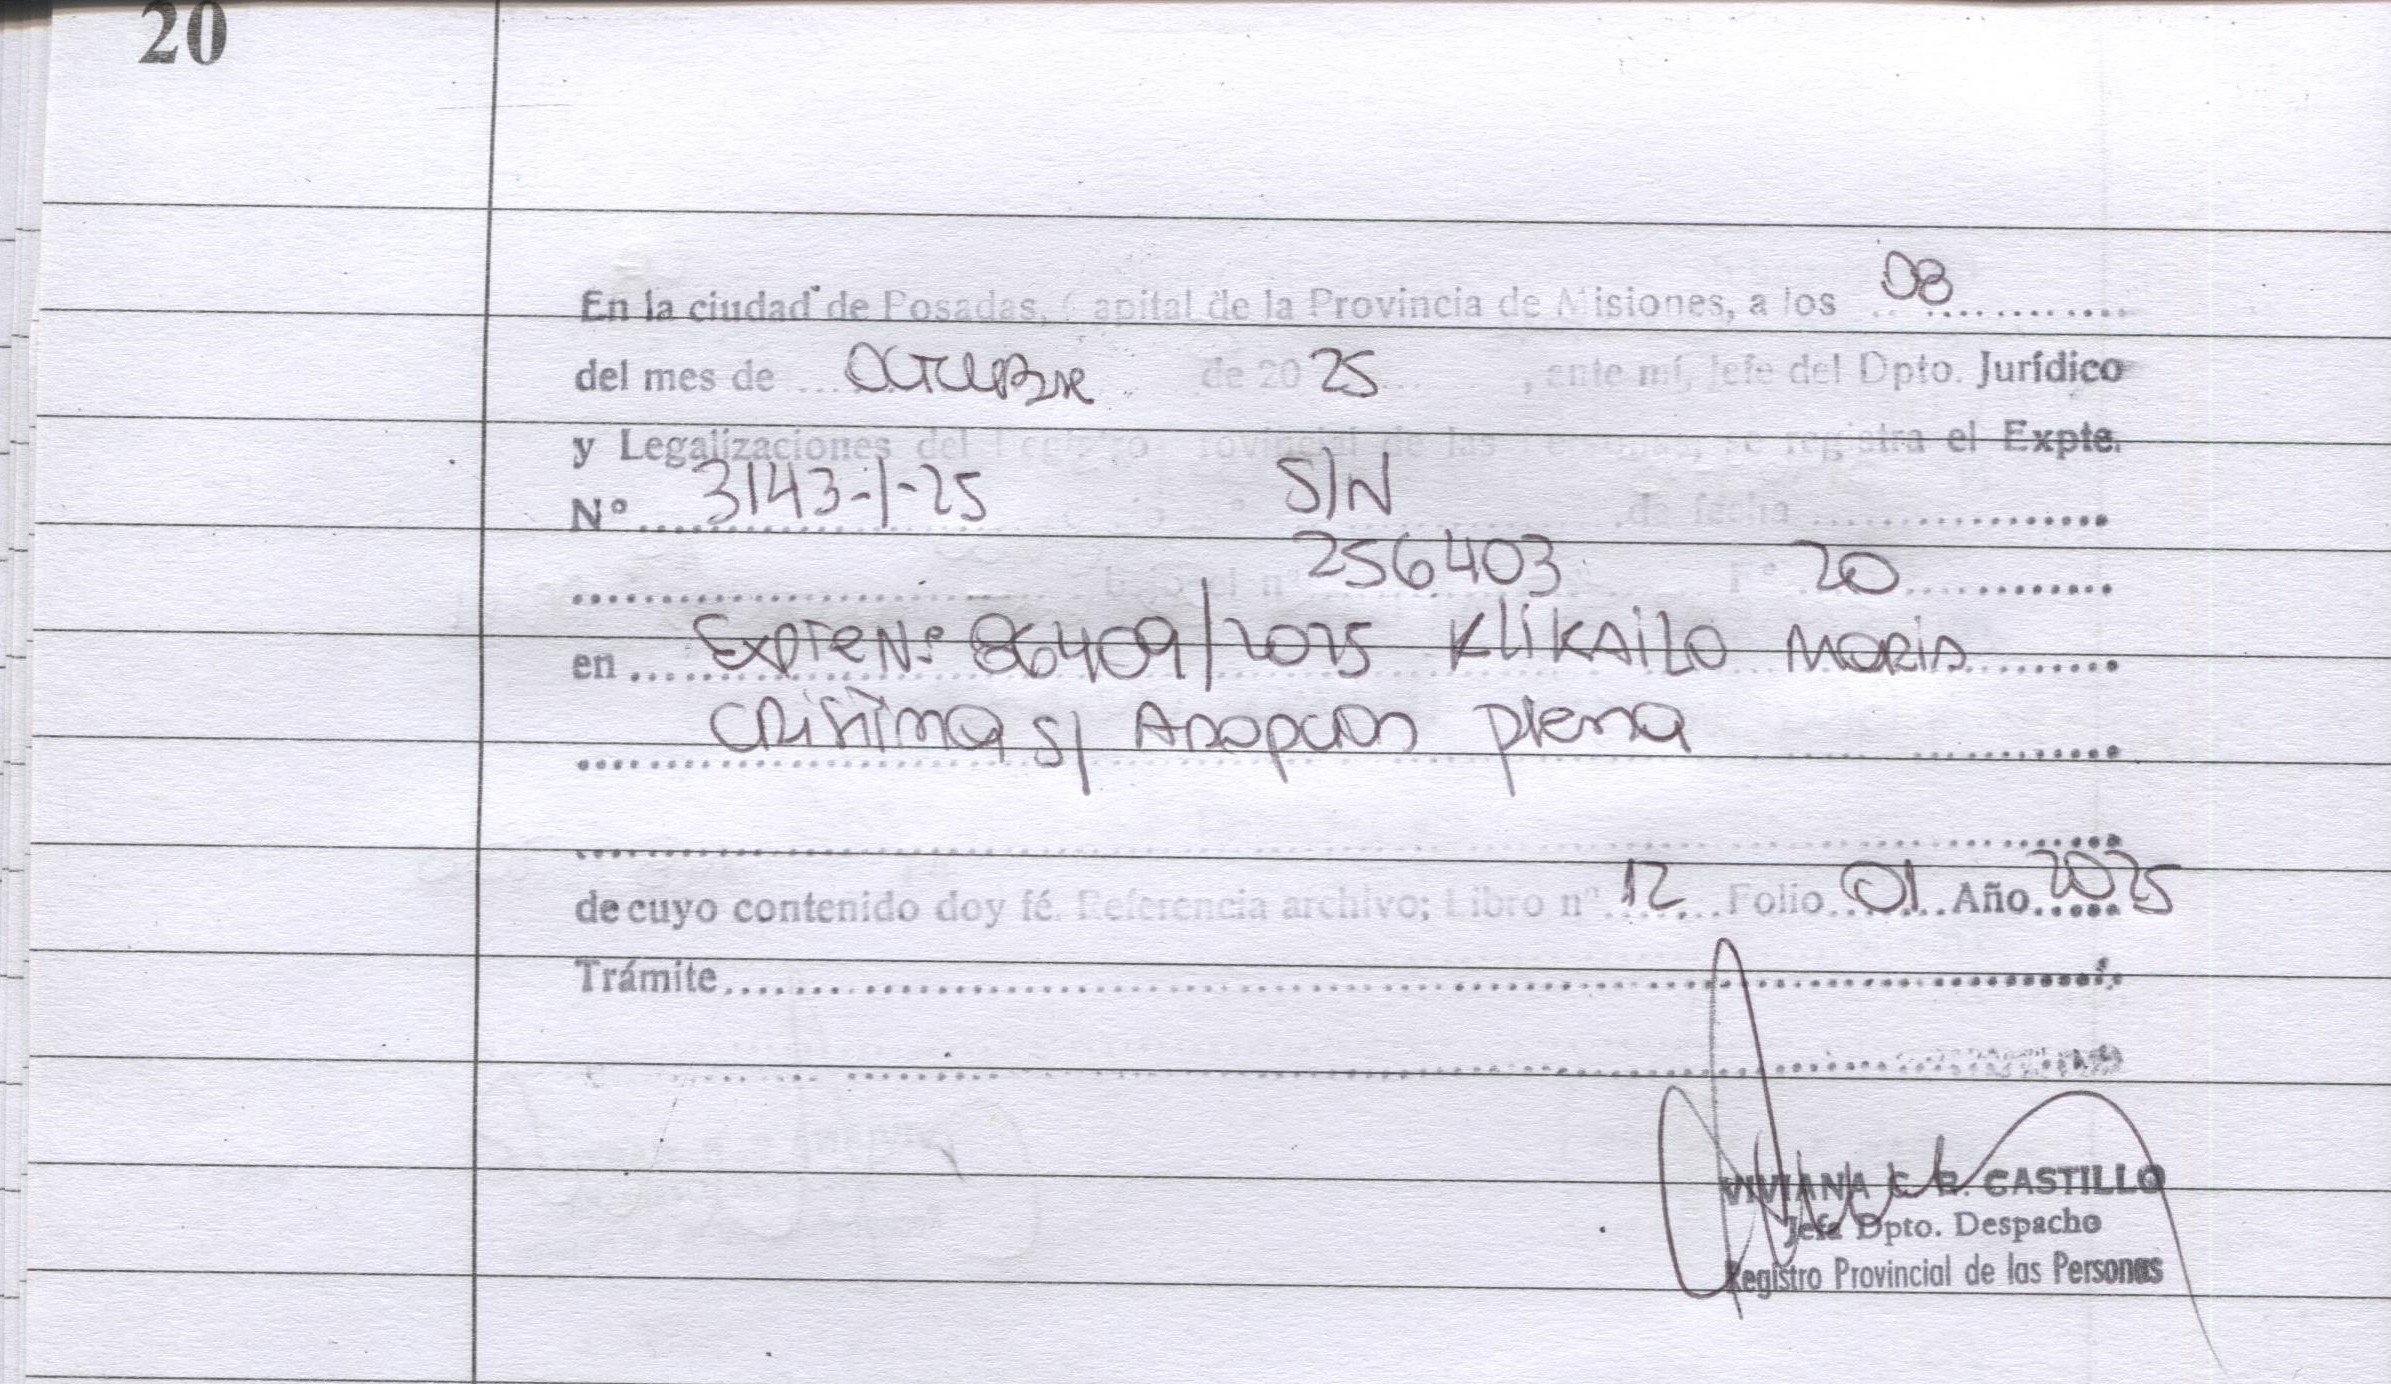 20
En la ciudad de Posadas, Capital de la Provincia de Misiones, a los 08
del mes de OCTUBRE de 20 25, ante mí, Jefe del Dpto. Jurídico
y Legalizaciones del Registro Provincial de las Personas, se registra el Expte.
Nº 3143-1-25 S/N de fecha
bajo el nº 256403 Fº 20
en Expte Nº 86409/2025 KLIKAILO MARIA
CRISTINA S/ ADOPCION plena
de cuyo contenido doy fé. Referencia archivo; Libro nº 12 Folio 01 Año 2025
Trámite
VIVIANA C. R. CASTILLO
Jefa Dpto. Despacho
Registro Provincial de las Personas